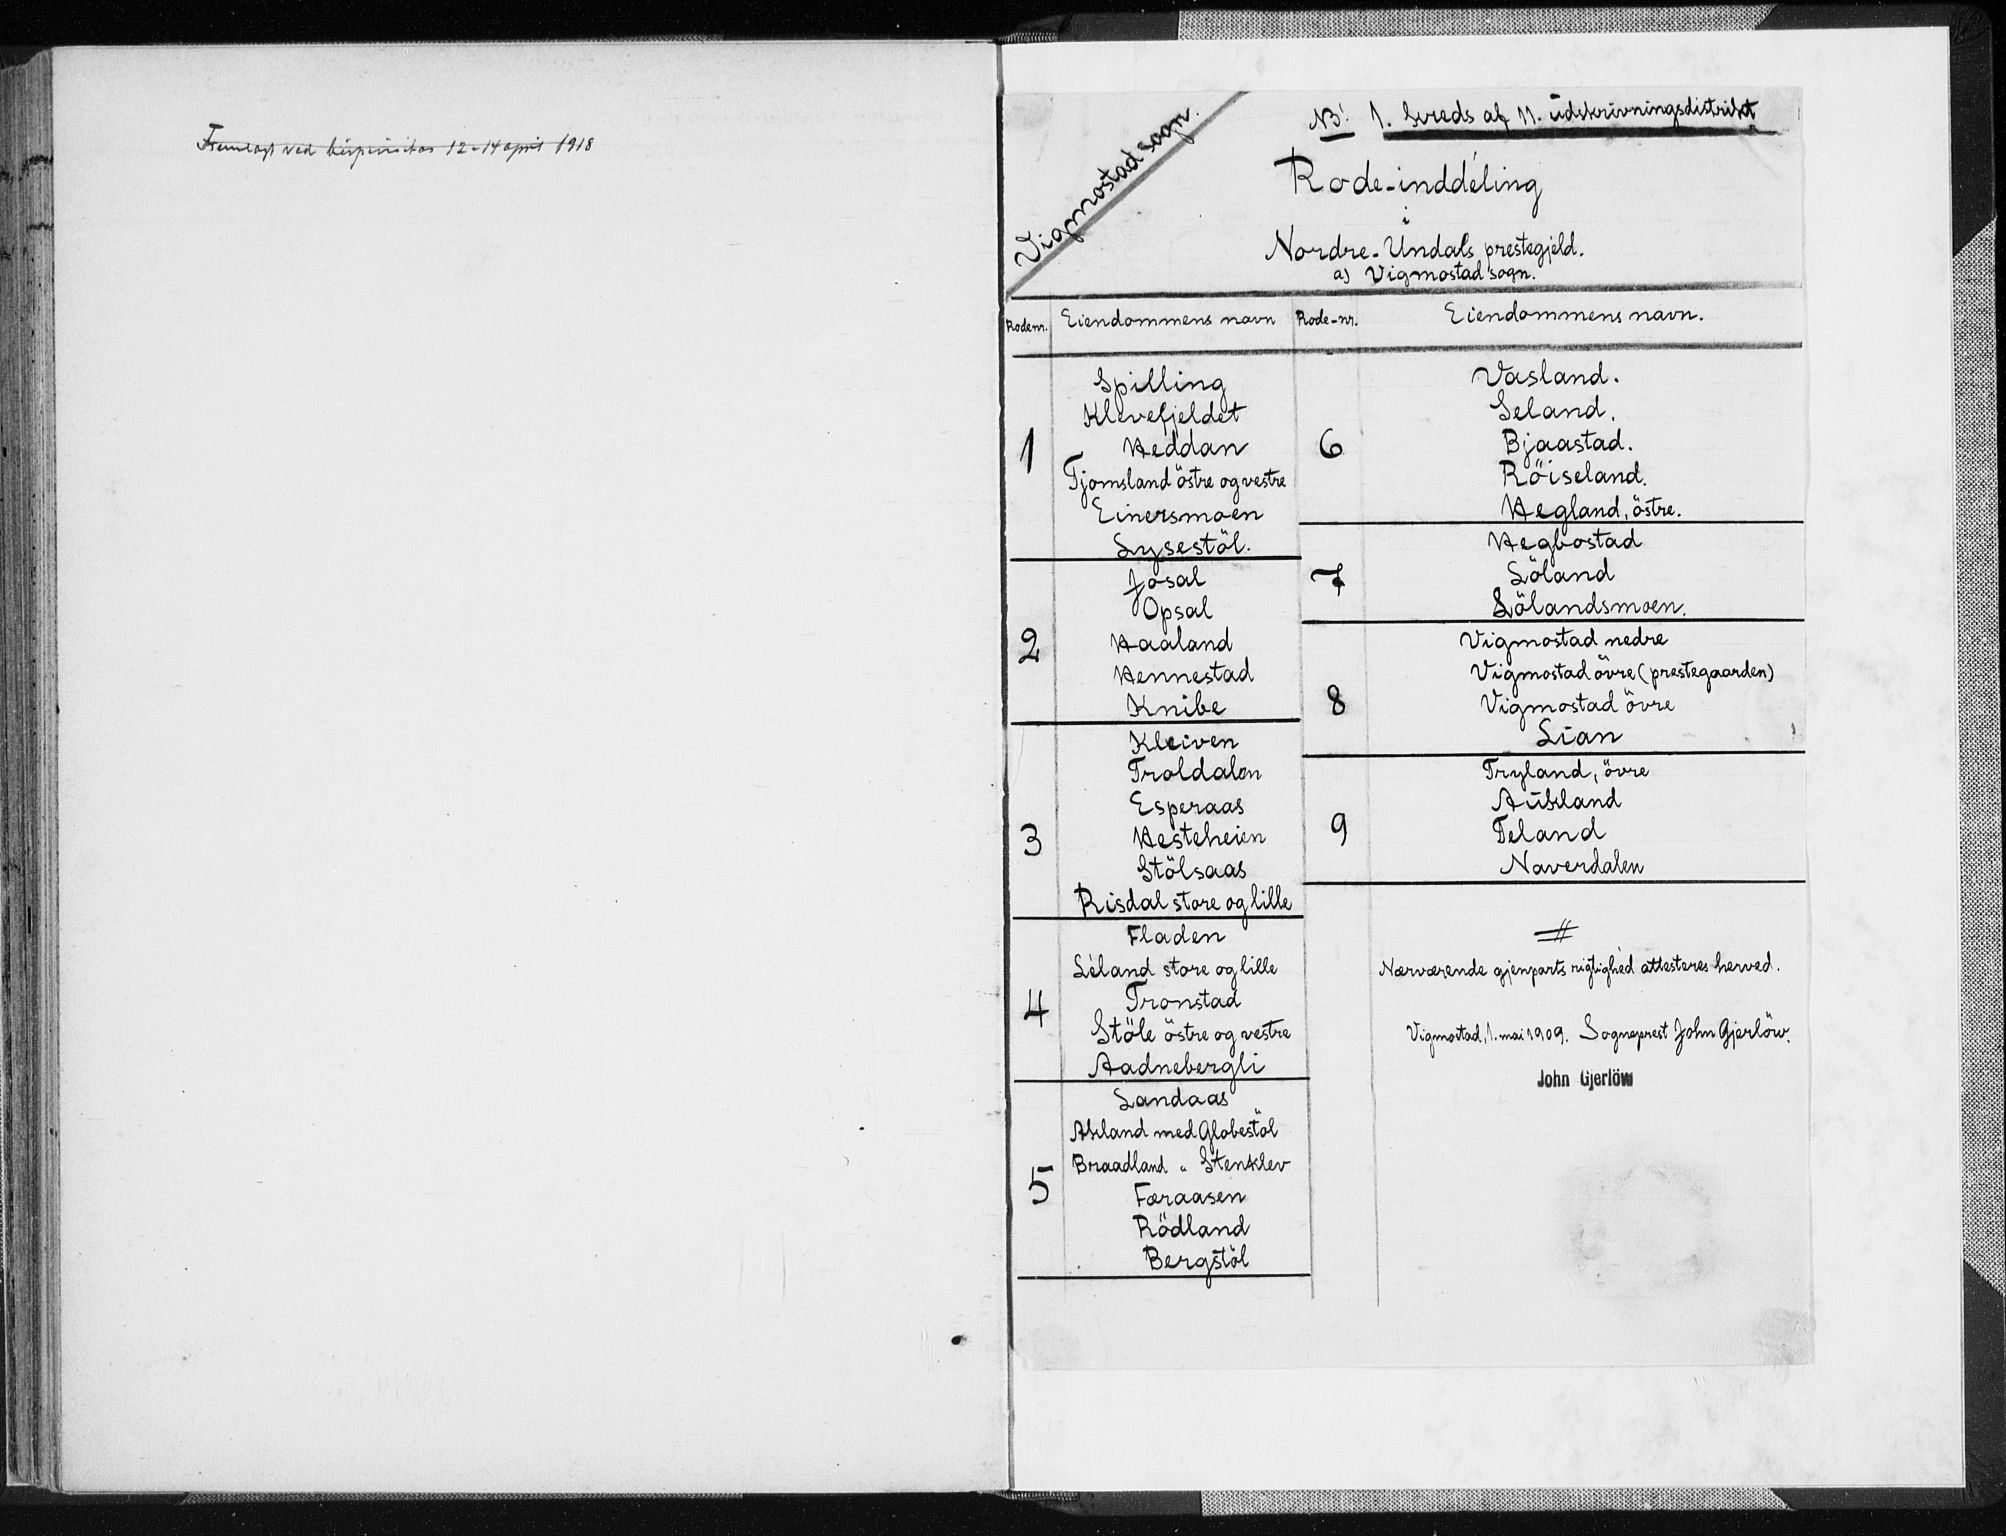 Fremlagt ved bispevisitas 12-14 april 1918
Vigmostad sogn.
NB! 1. kreds af 11. udskrivningsdistrikt
Rode-inddeling
i
Nordre-Undals prestegjeld.
a) Vigmostad sogn.
Rodenr. Eiendommens navn
1
Spilling
Klevefjeldet
Heddan
Tjomsland östre og vestre
Einersmoen
Lysestöl.
2
Josal
Opsal
Haaland
Hennestad
Knibe
3
Kleiven
Troldalen
Esperaas
Hesteheien
Stölsaas
Risdal store og lille
4
Fladen
Léland store og lille
Tronstad
Stöle östre og vestre
Aadnebergli
5
Landaas
Akland med Globestöl
Braadland " Stenklev
Færaasen
Rödland
Bergstöl
Rode-nr. Eiendommens navn.
6
Vasland.
Seland.
Bjaastad.
Röiseland.
Hegland, östre.
7
Hegbostad
Löland
Lölandsmoen.
8
Vigmostad nedre
Vigmostad övre (prestegaarden)
Vigmostad övre
Lian
9
Tryland, övre
Aukland
Teland
Naverdalen
Nærværende gjenparts rigtighed attesteres herved.
Vigmostad, 1. mai 1909. Sogneprest John Gjerlöw.
John Gjerlöw